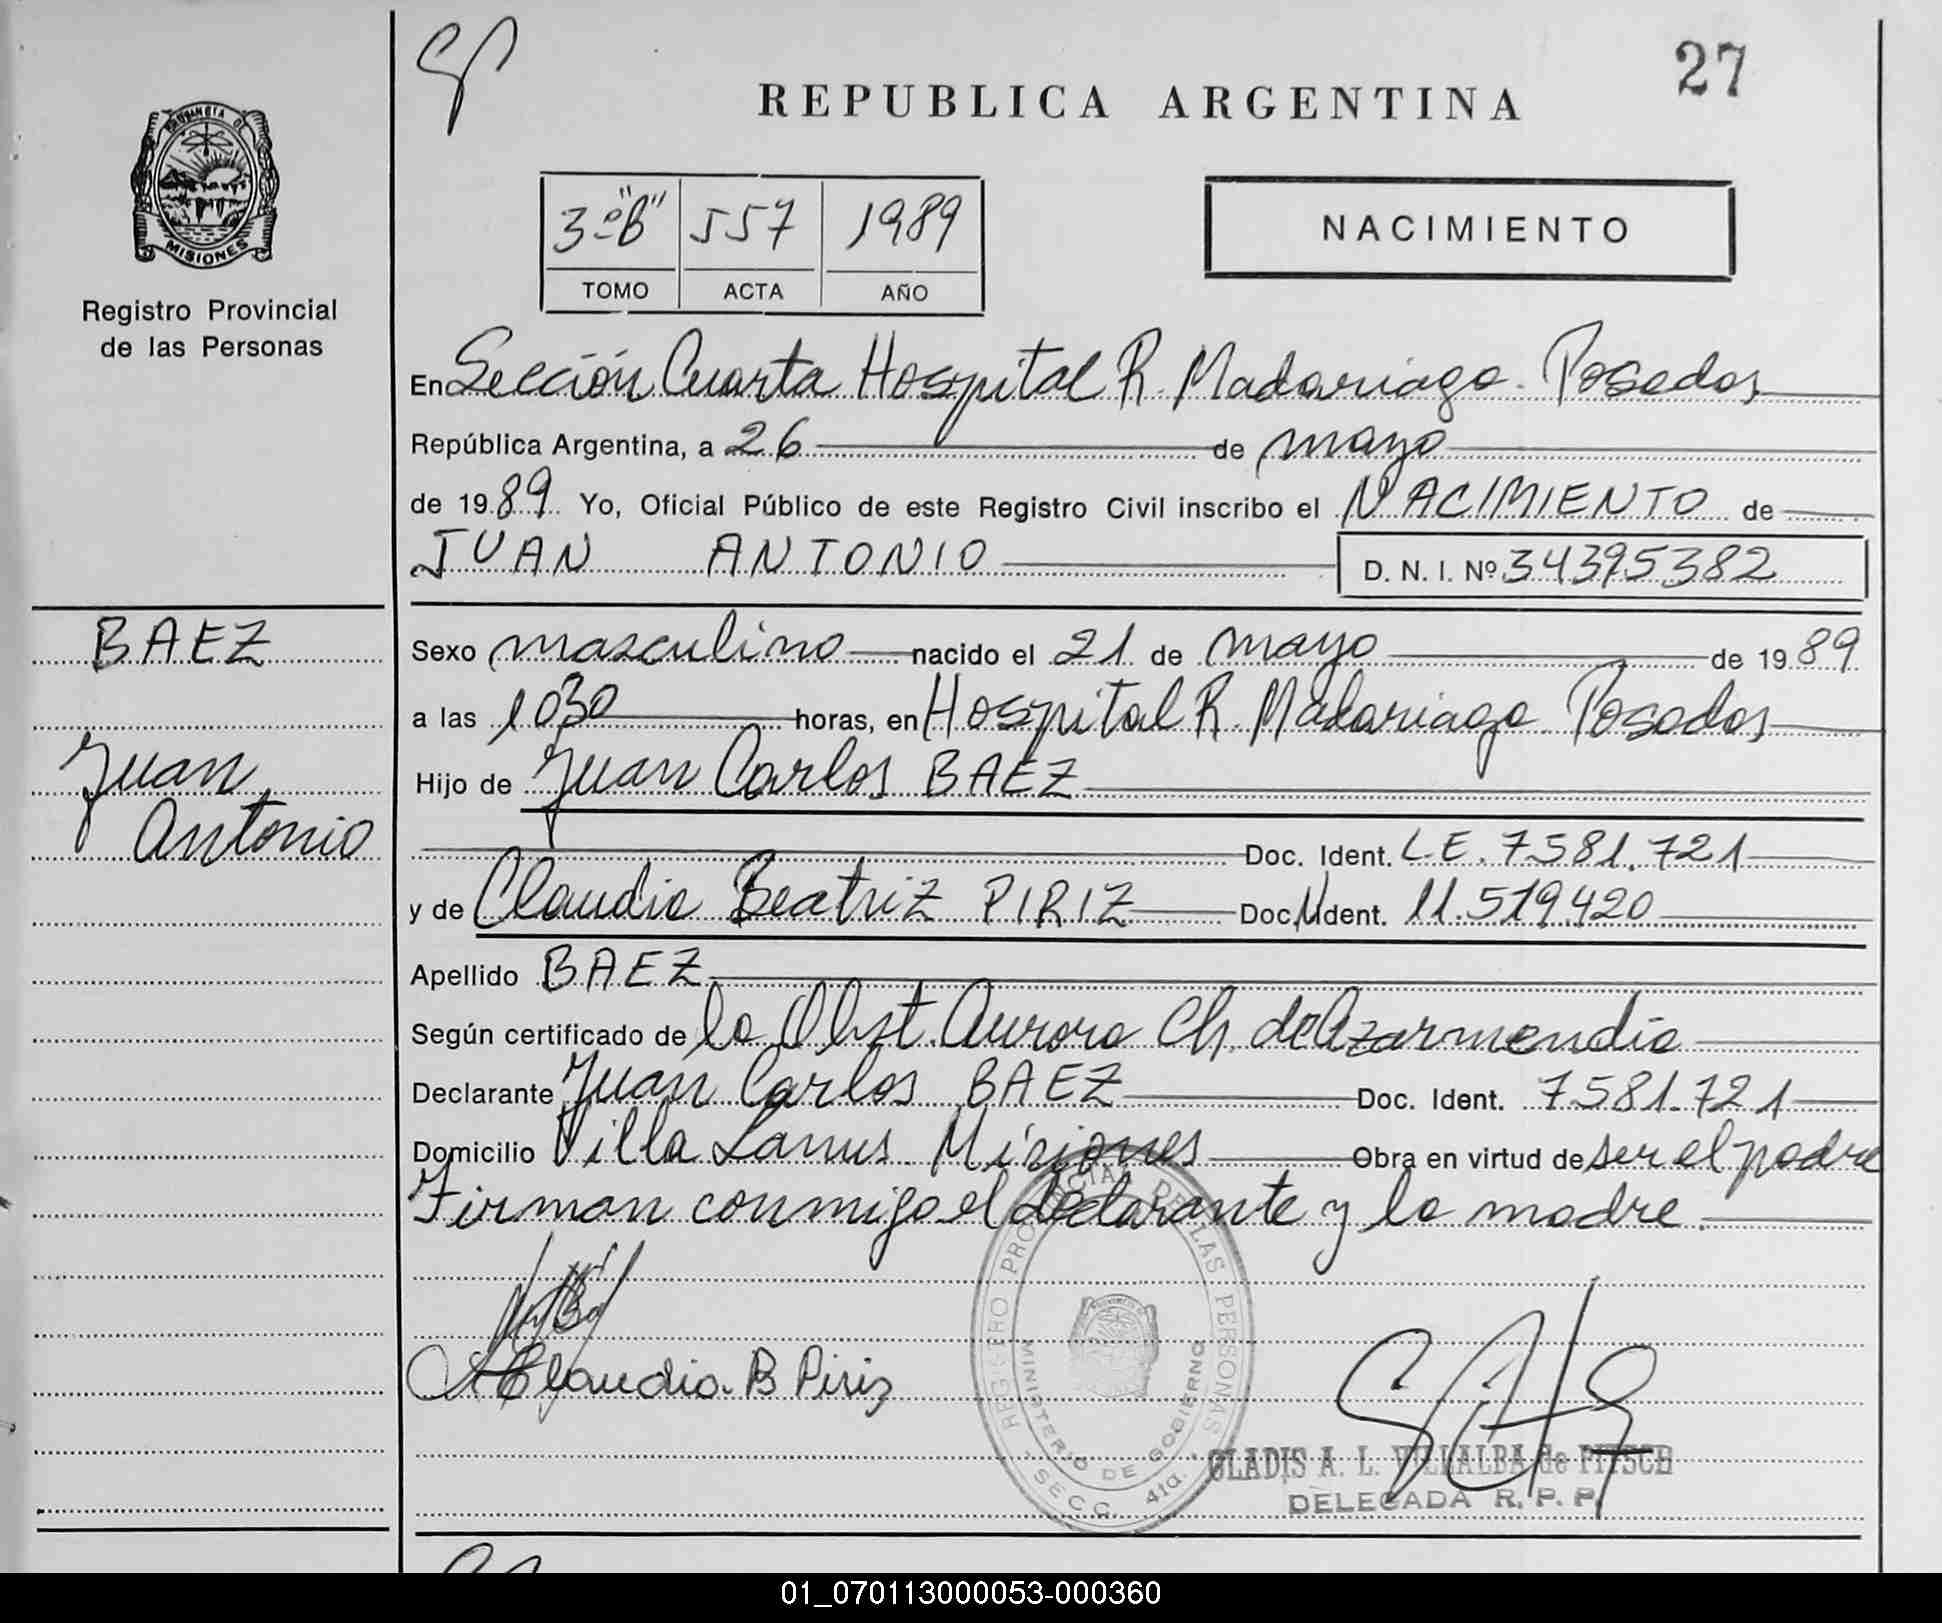 27
REPUBLICA ARGENTINA
PROVINCIA DE
MISIONES
Registro Provincial
de las Personas
3º "B" 557 1989
TOMO ACTA AÑO
NACIMIENTO
En Sección Cuarta Hospital R. Madariaga. Posadas
República Argentina, a 26 de mayo
de 1989 Yo, Oficial Público de este Registro Civil inscribo el NACIMIENTO de
JUAN ANTONIO D. N. I. Nº 34395382
BAEZ
Juan
Antonio
Sexo masculino nacido el 21 de mayo de 1989
a las 1030 horas, en Hospital R. Madariaga. Posadas
Hijo de Juan Carlos BAEZ
Doc. Ident. L.E. 7581.721
y de Claudia Beatriz PIRIZ Doc. Ident. 11.519.420
Apellido BAEZ
Según certificado de la Obst. Aurora Ch. de Azarmendia
Declarante Juan Carlos BAEZ Doc. Ident. 7581.721
Domicilio Villa Lanus. Misiones Obra en virtud de ser el padre
Firman conmigo el declarante y la madre.
Claudia B Piriz
REGISTRO PROVINCIAL DE LAS PERSONAS
MINISTERIO DE GOBIERNO
SECC. 4ta.
GLADIS A. L. VILLALBA de PITSCH
DELEGADA R. P. P.
01_070113000053-000360